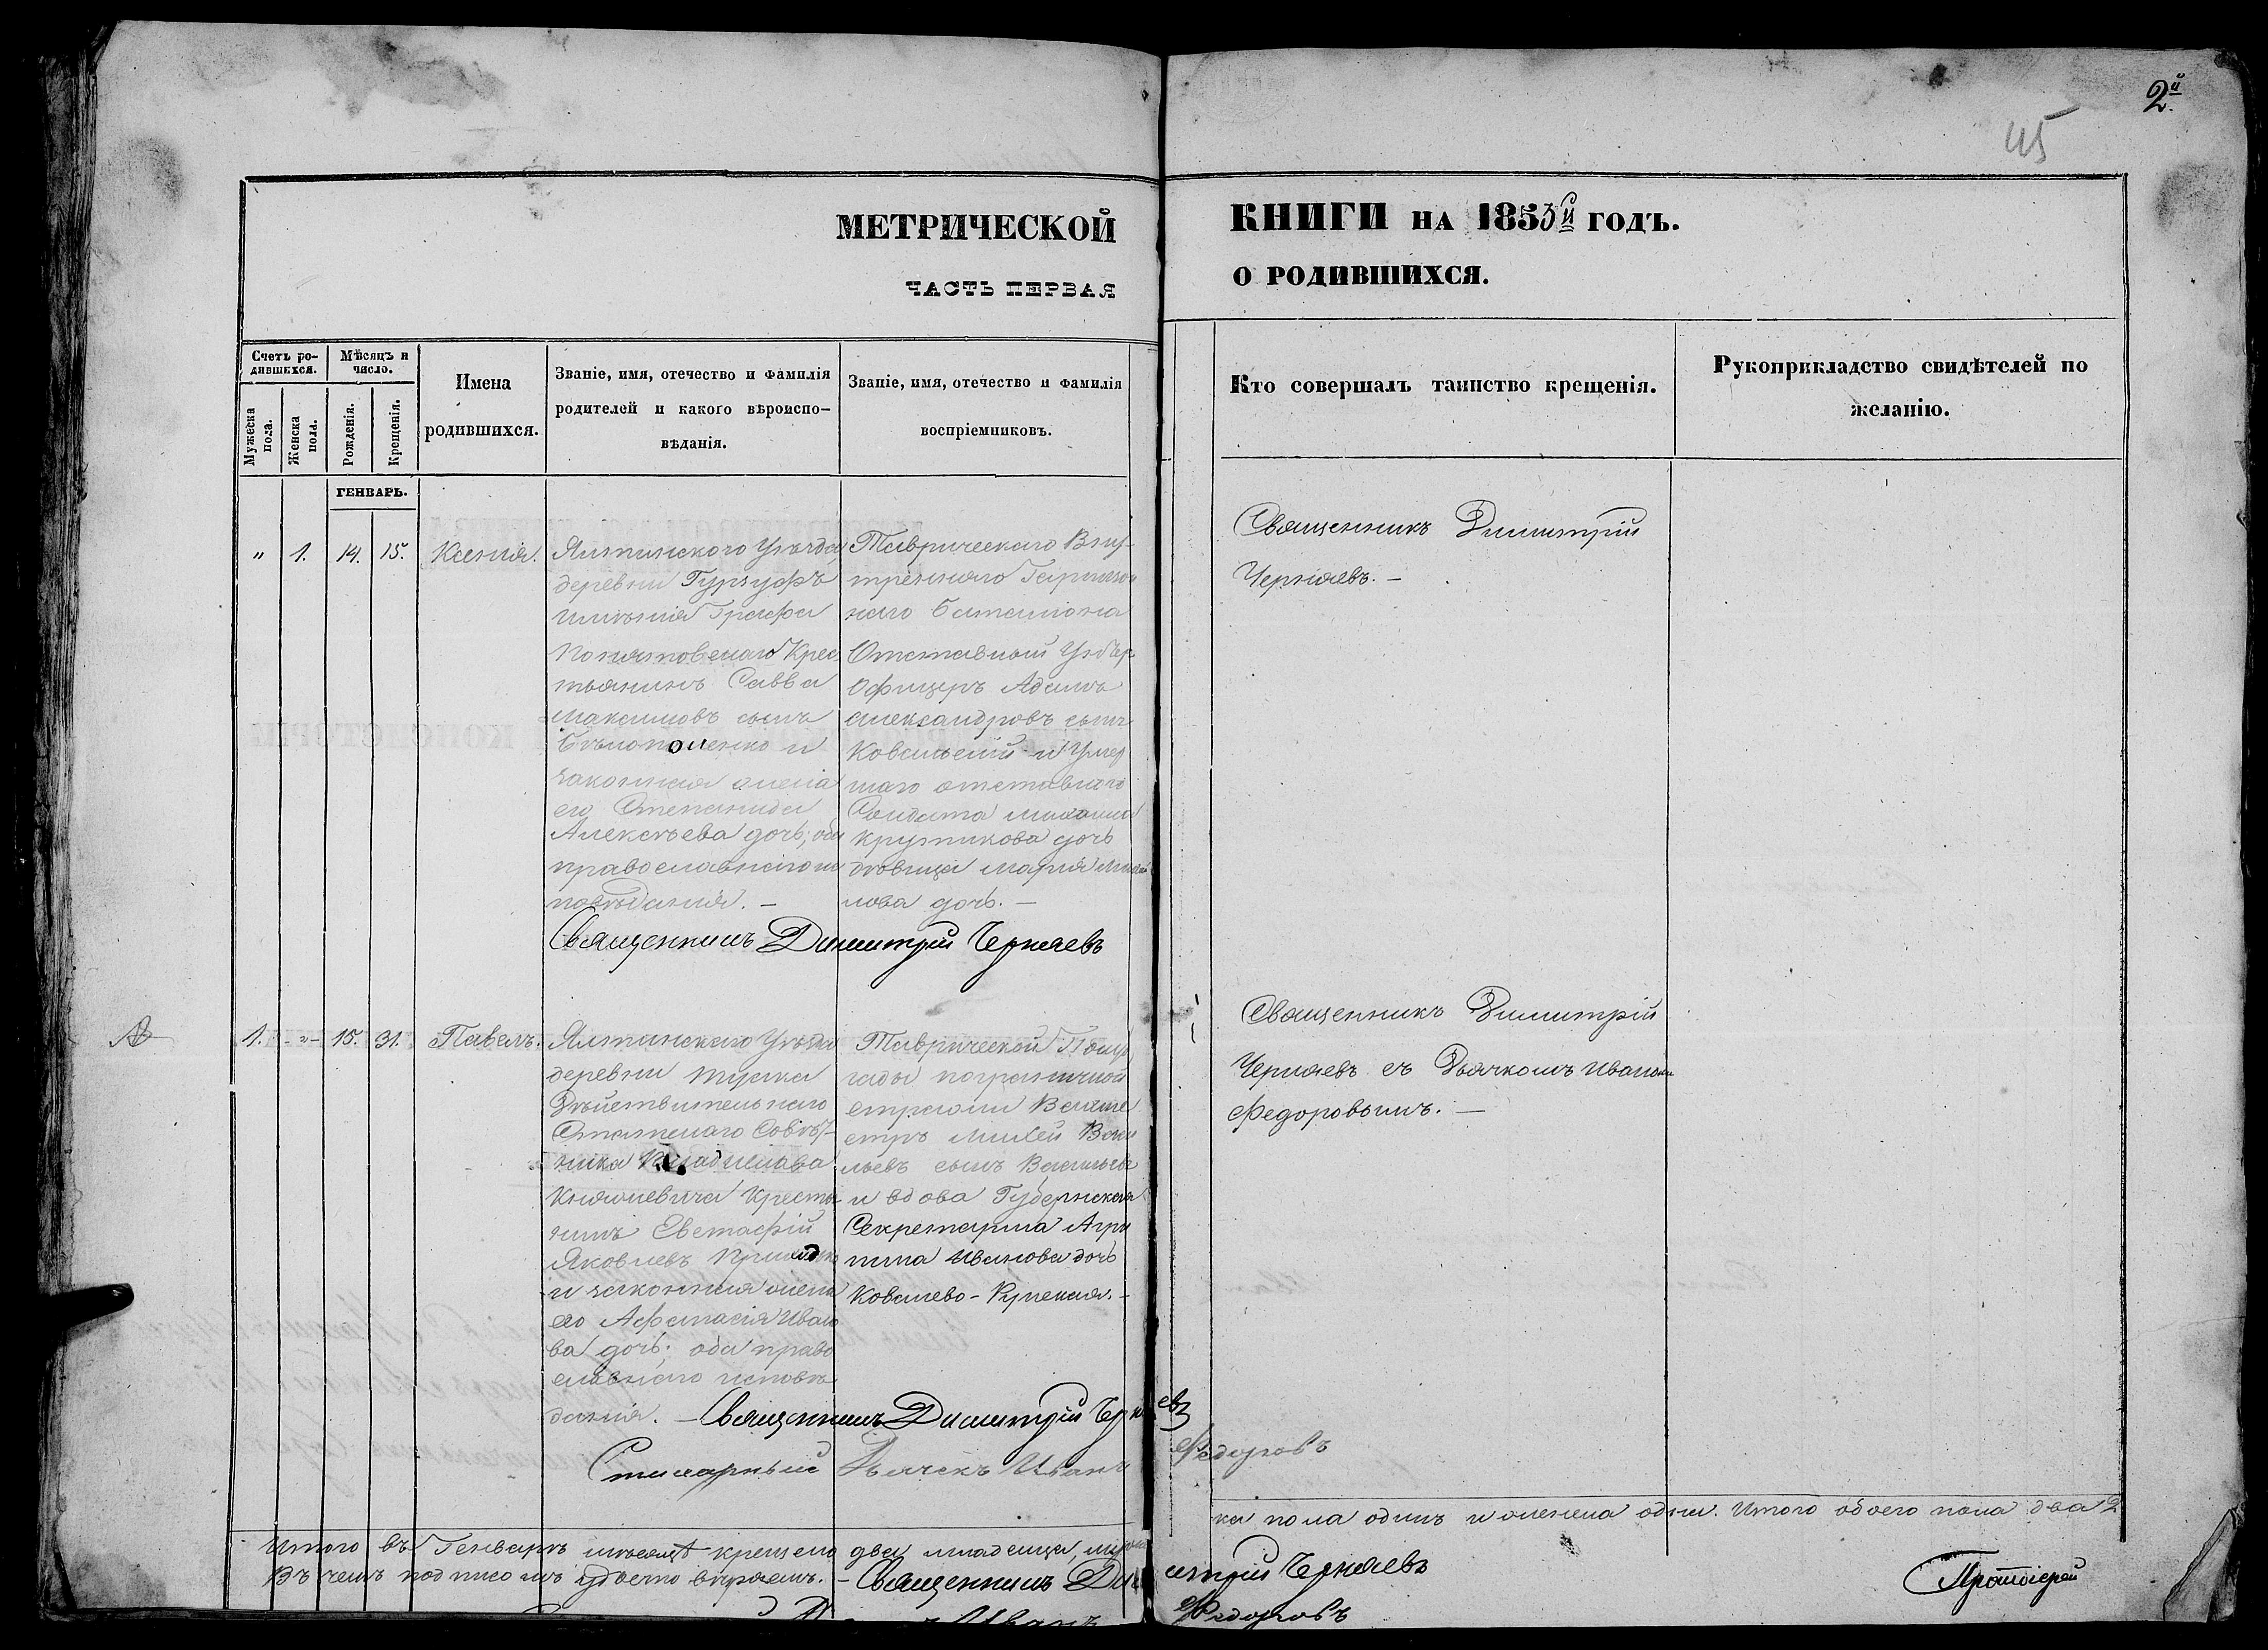 2й
45
МЕТРИЧЕСКОЙ
ЧАСТЬ ПЕРВАЯ
КНИГИ НА 1853й ГОДЪ.
О РОДИВШИХСЯ.
Счетъ ро-
дившихся.
Мужеска
пола.
Женска
пола.
Мѣсяцъ и
число.
Рожденія.
Крещенія.
Имена
родившихся.
Званіе, имя, отечество и фамилія
родителей и какого вѣроиспо-
вѣданія.
Званіе, имя, отечество и фамилія
воспріемниковъ.
Кто совершалъ таинство крещенія.
Рукоприкладство свидѣтелей по
желанію.
ГЕНВАРЬ.
" 1. 14. 15. Ксенія.
Ялтинскаго Уѣзда
деревни Гурзуфъ
имѣнія Графа
Крес
тьянинъ Савва
Максимовъ сынъ
и
законная жена
его Степанида
Алексѣева дочь; оба
православнаго ис
повѣданія. –
Таврическаго Вну-
тренняго Гарнизон
наго Баталіона
Отставный Унтеръ
Офицеръ Адамъ
Александровъ сынъ
Ковальскій и Умер
шаго отставнаго
Солдата Михаила
Крутикова дочь
дѣвица Марія Михай
лова дочь. –
Священникъ Димитрій Черняевъ
Священникъ Димитрій
Черняевъ. –
1. - " - 15. 31. Павелъ.
Ялтинскаго Уѣзда
деревни
Дѣйствительнаго
Статскаго Совѣт-
ника Владислава
Княжевича Крестья
нинъ Евстафій
Яковлевъ
и законная жена
его Афанасія Ивано
ва дочь; оба право
славнаго исповѣ
данія. –
Таврической Полу
гады пограничной
стражи Вахми
стръ Васи
льевъ сынъ Васильевъ
и вдова Губернская
Секретарша Агри
пина Иванова дочь
Ковалево-
Священникъ Димитрій Черняевъ
Дьячекъ Иванъ Федоровъ
Священникъ Димитрій
Черняевъ съ Дьячкомъ Иваномъ
Федоровымъ. –
Итого въ Генварѣ мѣсяцѣ крещено два младенца, муже
ска пола одинъ и женска одна. Итого обоего пола два 2
Въ чемъ подписомъ вѣряемъ. – Священникъ Димитрій Черняевъ
Иванъ Федоровъ
Протоіерей